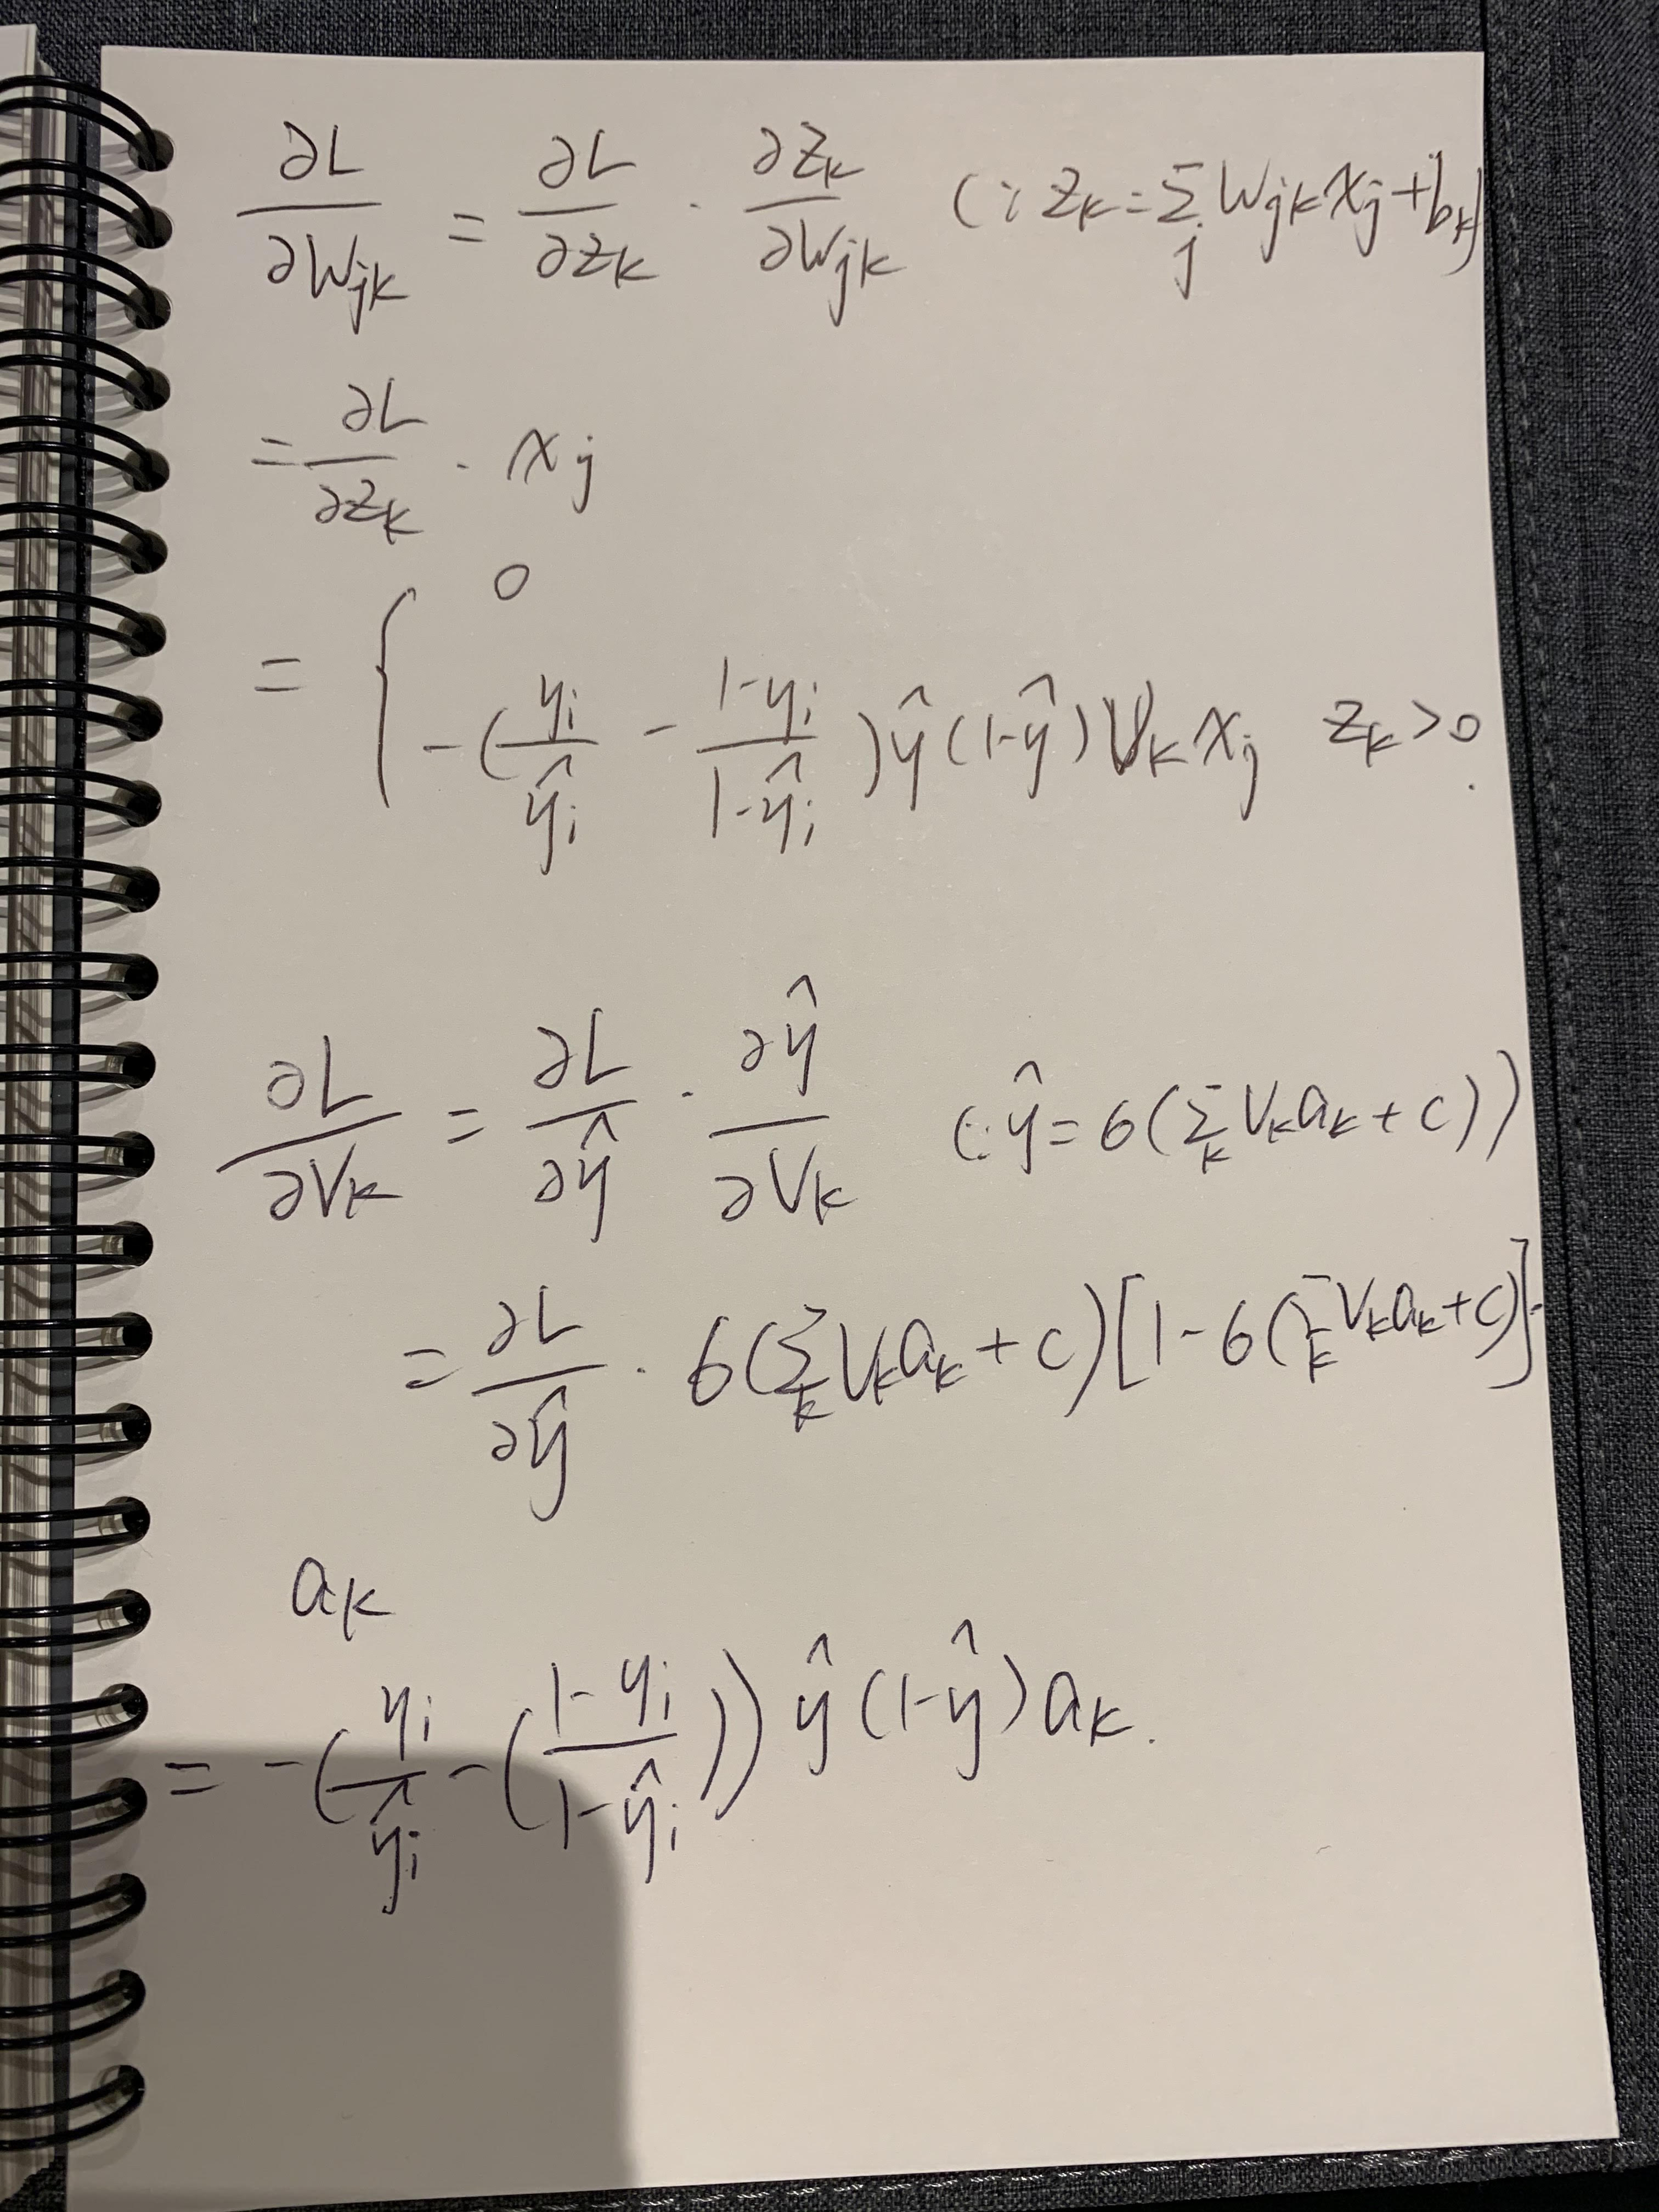 ∂L/∂W_jk = ∂L/∂z_k · ∂z_k/∂W_jk (∵ z_k = Σ_j W_jk x_j + b_k)
= ∂L/∂z_k · x_j
= { 0
-(y_i/ŷ_i - (1-y_i)/(1-ŷ_i)) ŷ(1-ŷ) V_k x_j z_k > 0.
∂L/∂V_k = ∂L/∂ŷ · ∂ŷ/∂V_k (∵ ŷ = σ(Σ_k V_k a_k + c))
= ∂L/∂ŷ · σ(Σ_k V_k a_k + c)[1 - σ(Σ_k V_k a_k + c)]·
a_k
= -(y_i/ŷ_i - ((1-y_i)/(1-ŷ_i))) ŷ(1-ŷ) a_k.